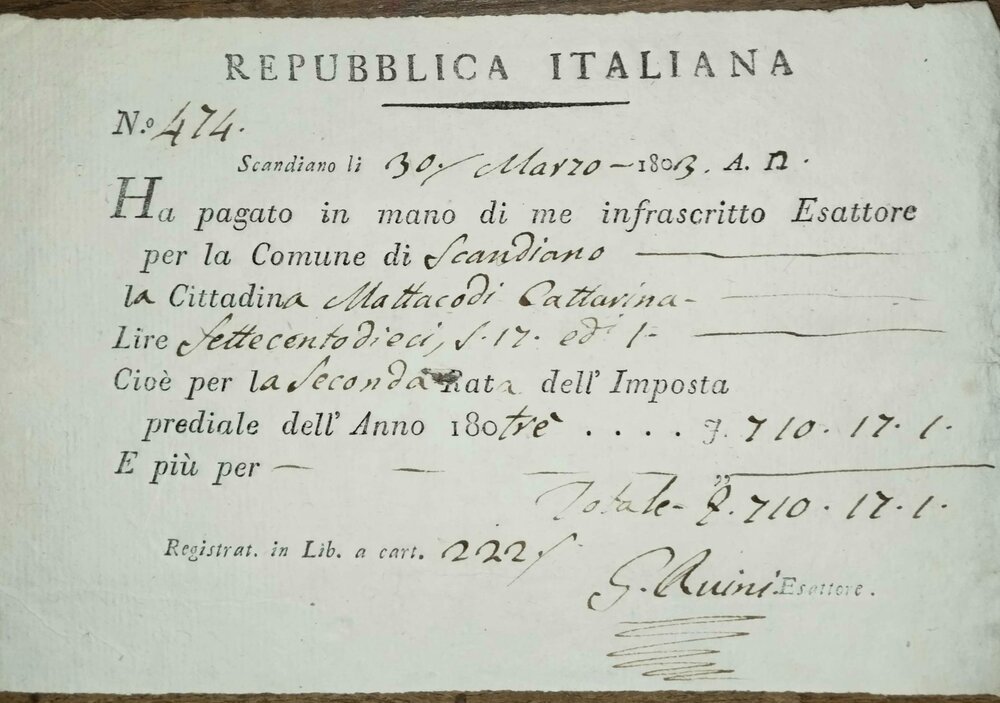 REPUBBLICA ITALIANA
N.º 474.
Scandiano li 30 Marzo - 1803. A. II.
Ha pagato in mano di me infrascritto Esattore
per la Comune di Scandiano
la Cittadina Mattacodi Cattarina -
Lire Settecentodieci, s. 17. e di 1 -
Cioè per la Seconda Rata dell' Imposta
prediale dell' Anno 180tre . . . . 710. 17. 1.
E più per — — — — "
Totale - 710. 17. 1.
Registrat. in Lib. a cart. 222
G. Ruini Esattore.